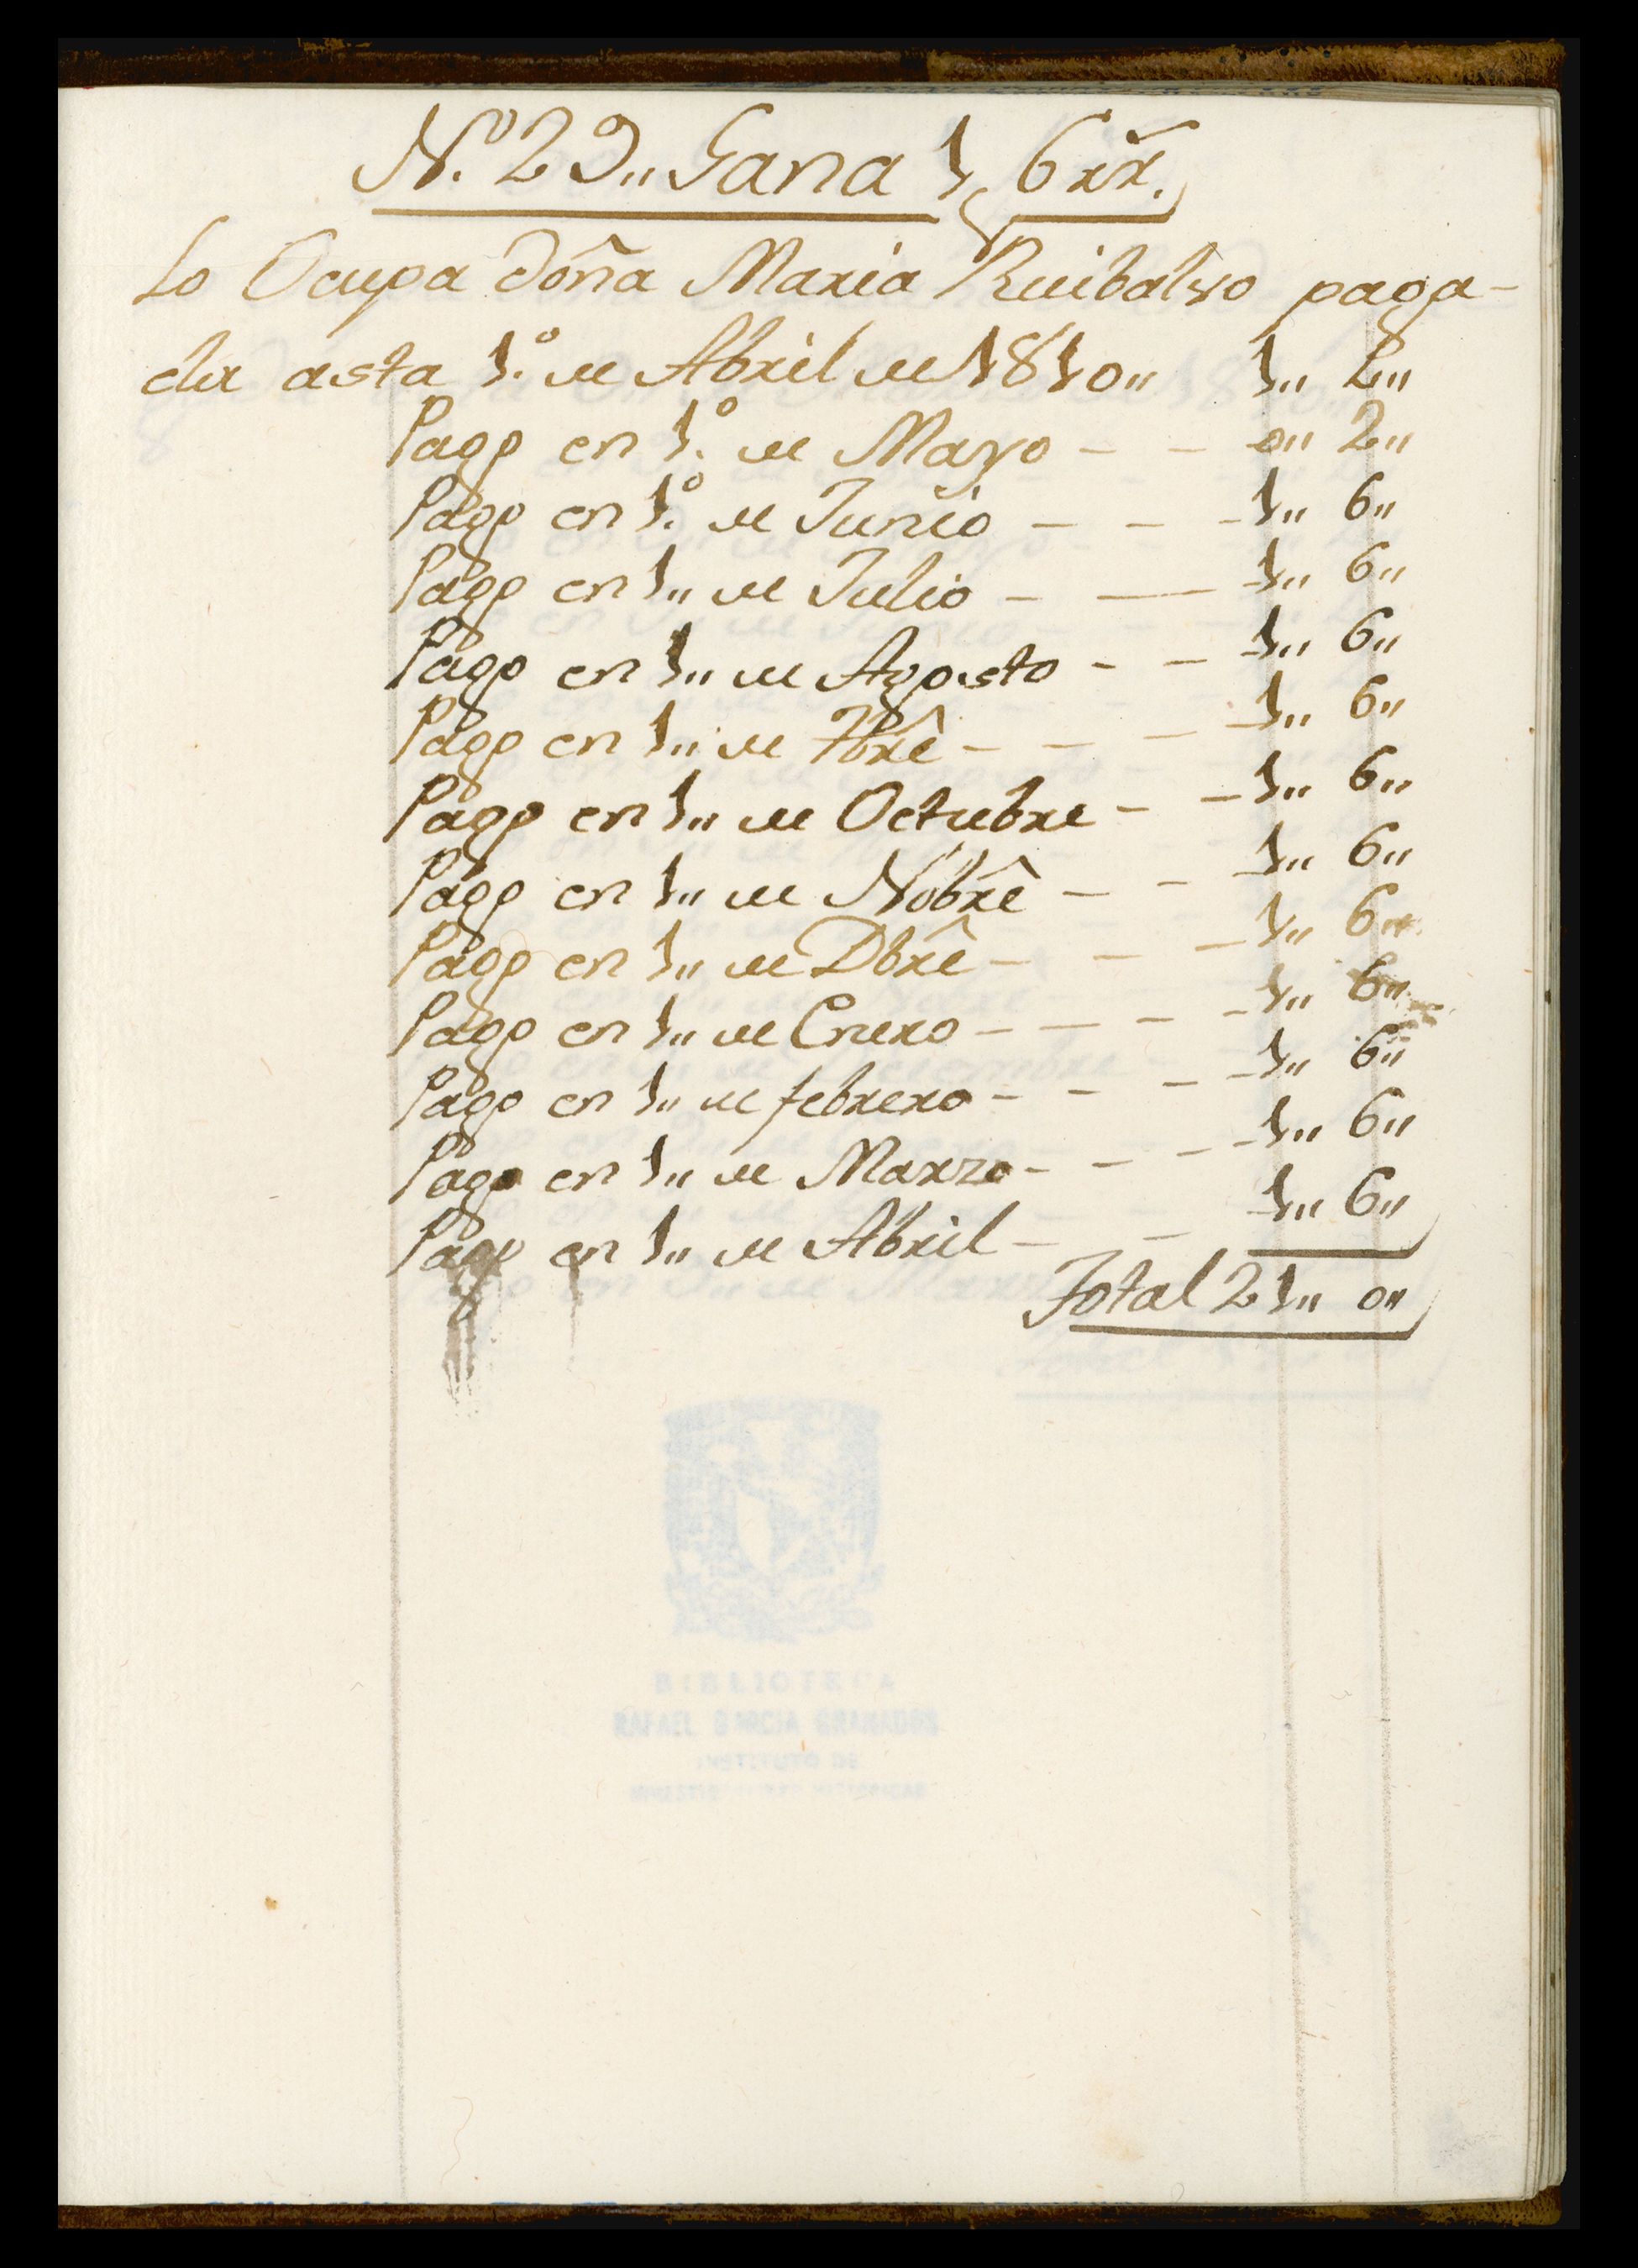 N.º 29,, Gana 1, 6 rr.
Lo Ocupa doña Maria Ruibalvo paga-
da asta 1.º de Abril de 1810,, 1,, 2,,
Pago en 1.º de Mayo - - 0,, 2,,
Pago en 1.º de Junio - - - 1,, 6,,
Pago en 1,, de Julio - - 1,, 6,,
Pago en 1,, de Agosto - - 1,, 6,,
Pago en 1,, de 7brê - - - - 1,, 6,,
Pago en 1,, de Octubre - - 1,, 6,,
Pago en 1,, de Nobrê - - - 1,, 6,,
Pago en 1,, de Dbrê - - - 1,, 6,,
Pago en 1,, de Enero - - - - 1,, 6,,
Pago en 1,, de febrero - - - - 1,, 6,,
Pago en 1,, de Marzo - - - - 1,, 6,,
Pago en 1,, de Abril - - 1,, 6,,
Total 21,, 0,,
BIBLIOTECA
RAFAEL GARCIA GRANADOS
INSTITUTO DE